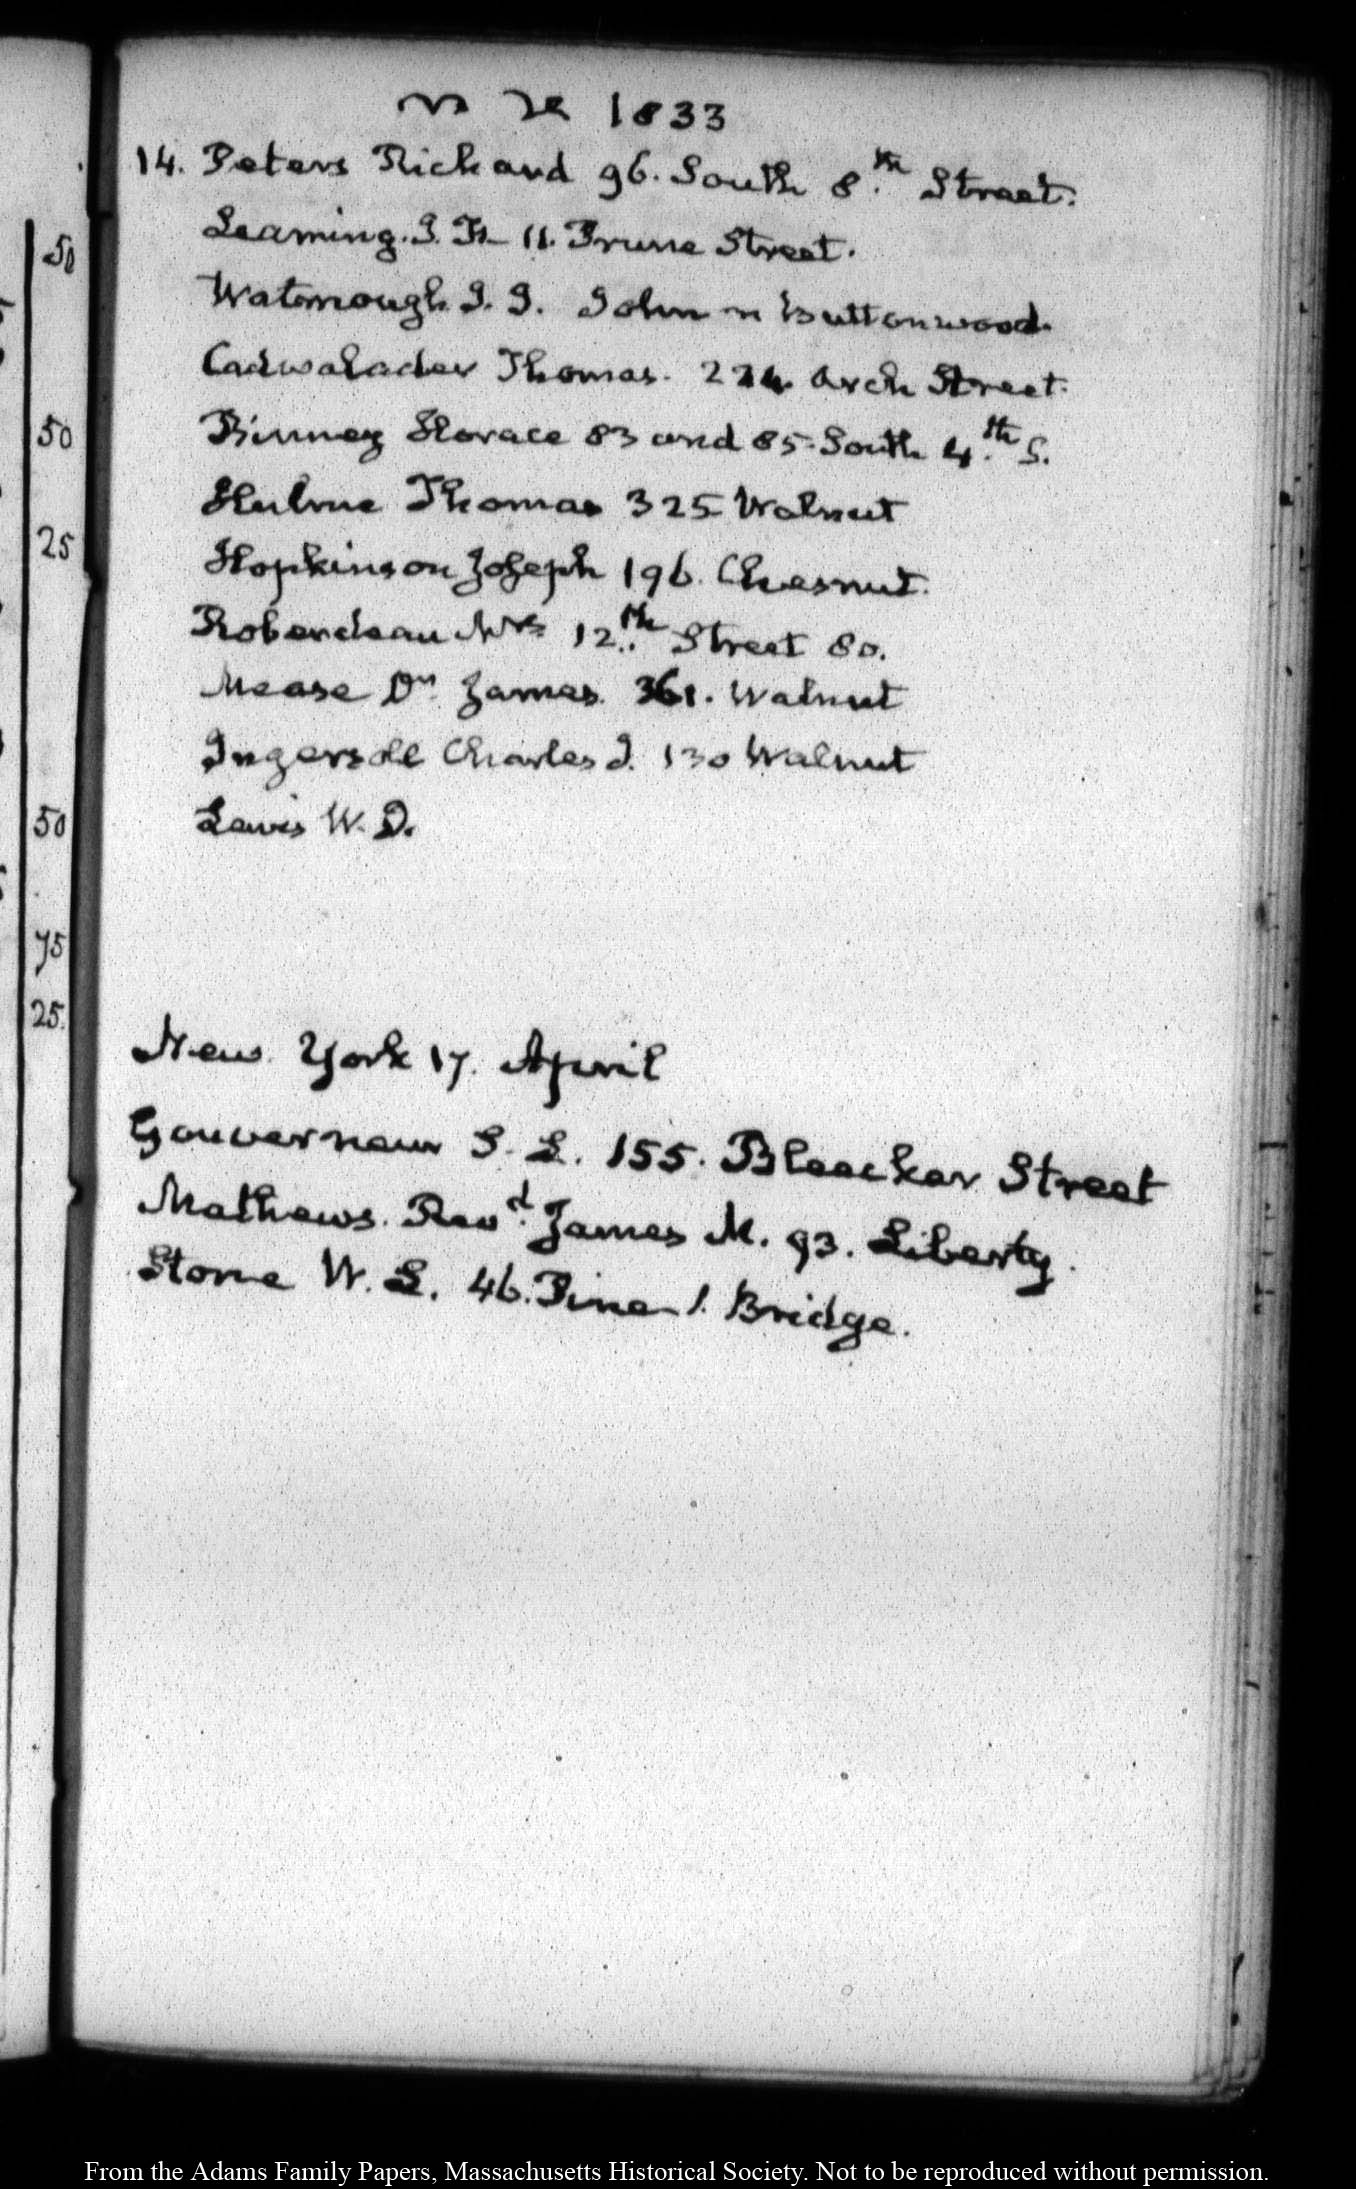 1833
14. Peters Richard 96. South 8.th Street.
Leaming. J. F. 11. Prune Street.
Watmough J. G. John n Buttonwood.
Cadwalader Thomas. 224 Arch Street.
Binney Horace 83 and 85 South 4.th S.
Hulme Thomas 325 Walnut
Hopkinson Joseph 196. Chesnut.
Roberdeau Mrs 12.th Street 80.
Mease Dr. James. 361. Walnut
Ingersoll Charles J. 130 Walnut
Lewis W. D.
New York 17. April
Gouverneur S. L. 155. Bleecker Street
Mathews. Revd. James M. 93. Liberty.
Stone W. L. 46. Pine 1. Bridge.
50
50
25
50
75
25.
From the Adams Family Papers, Massachusetts Historical Society. Not to be reproduced without permission.